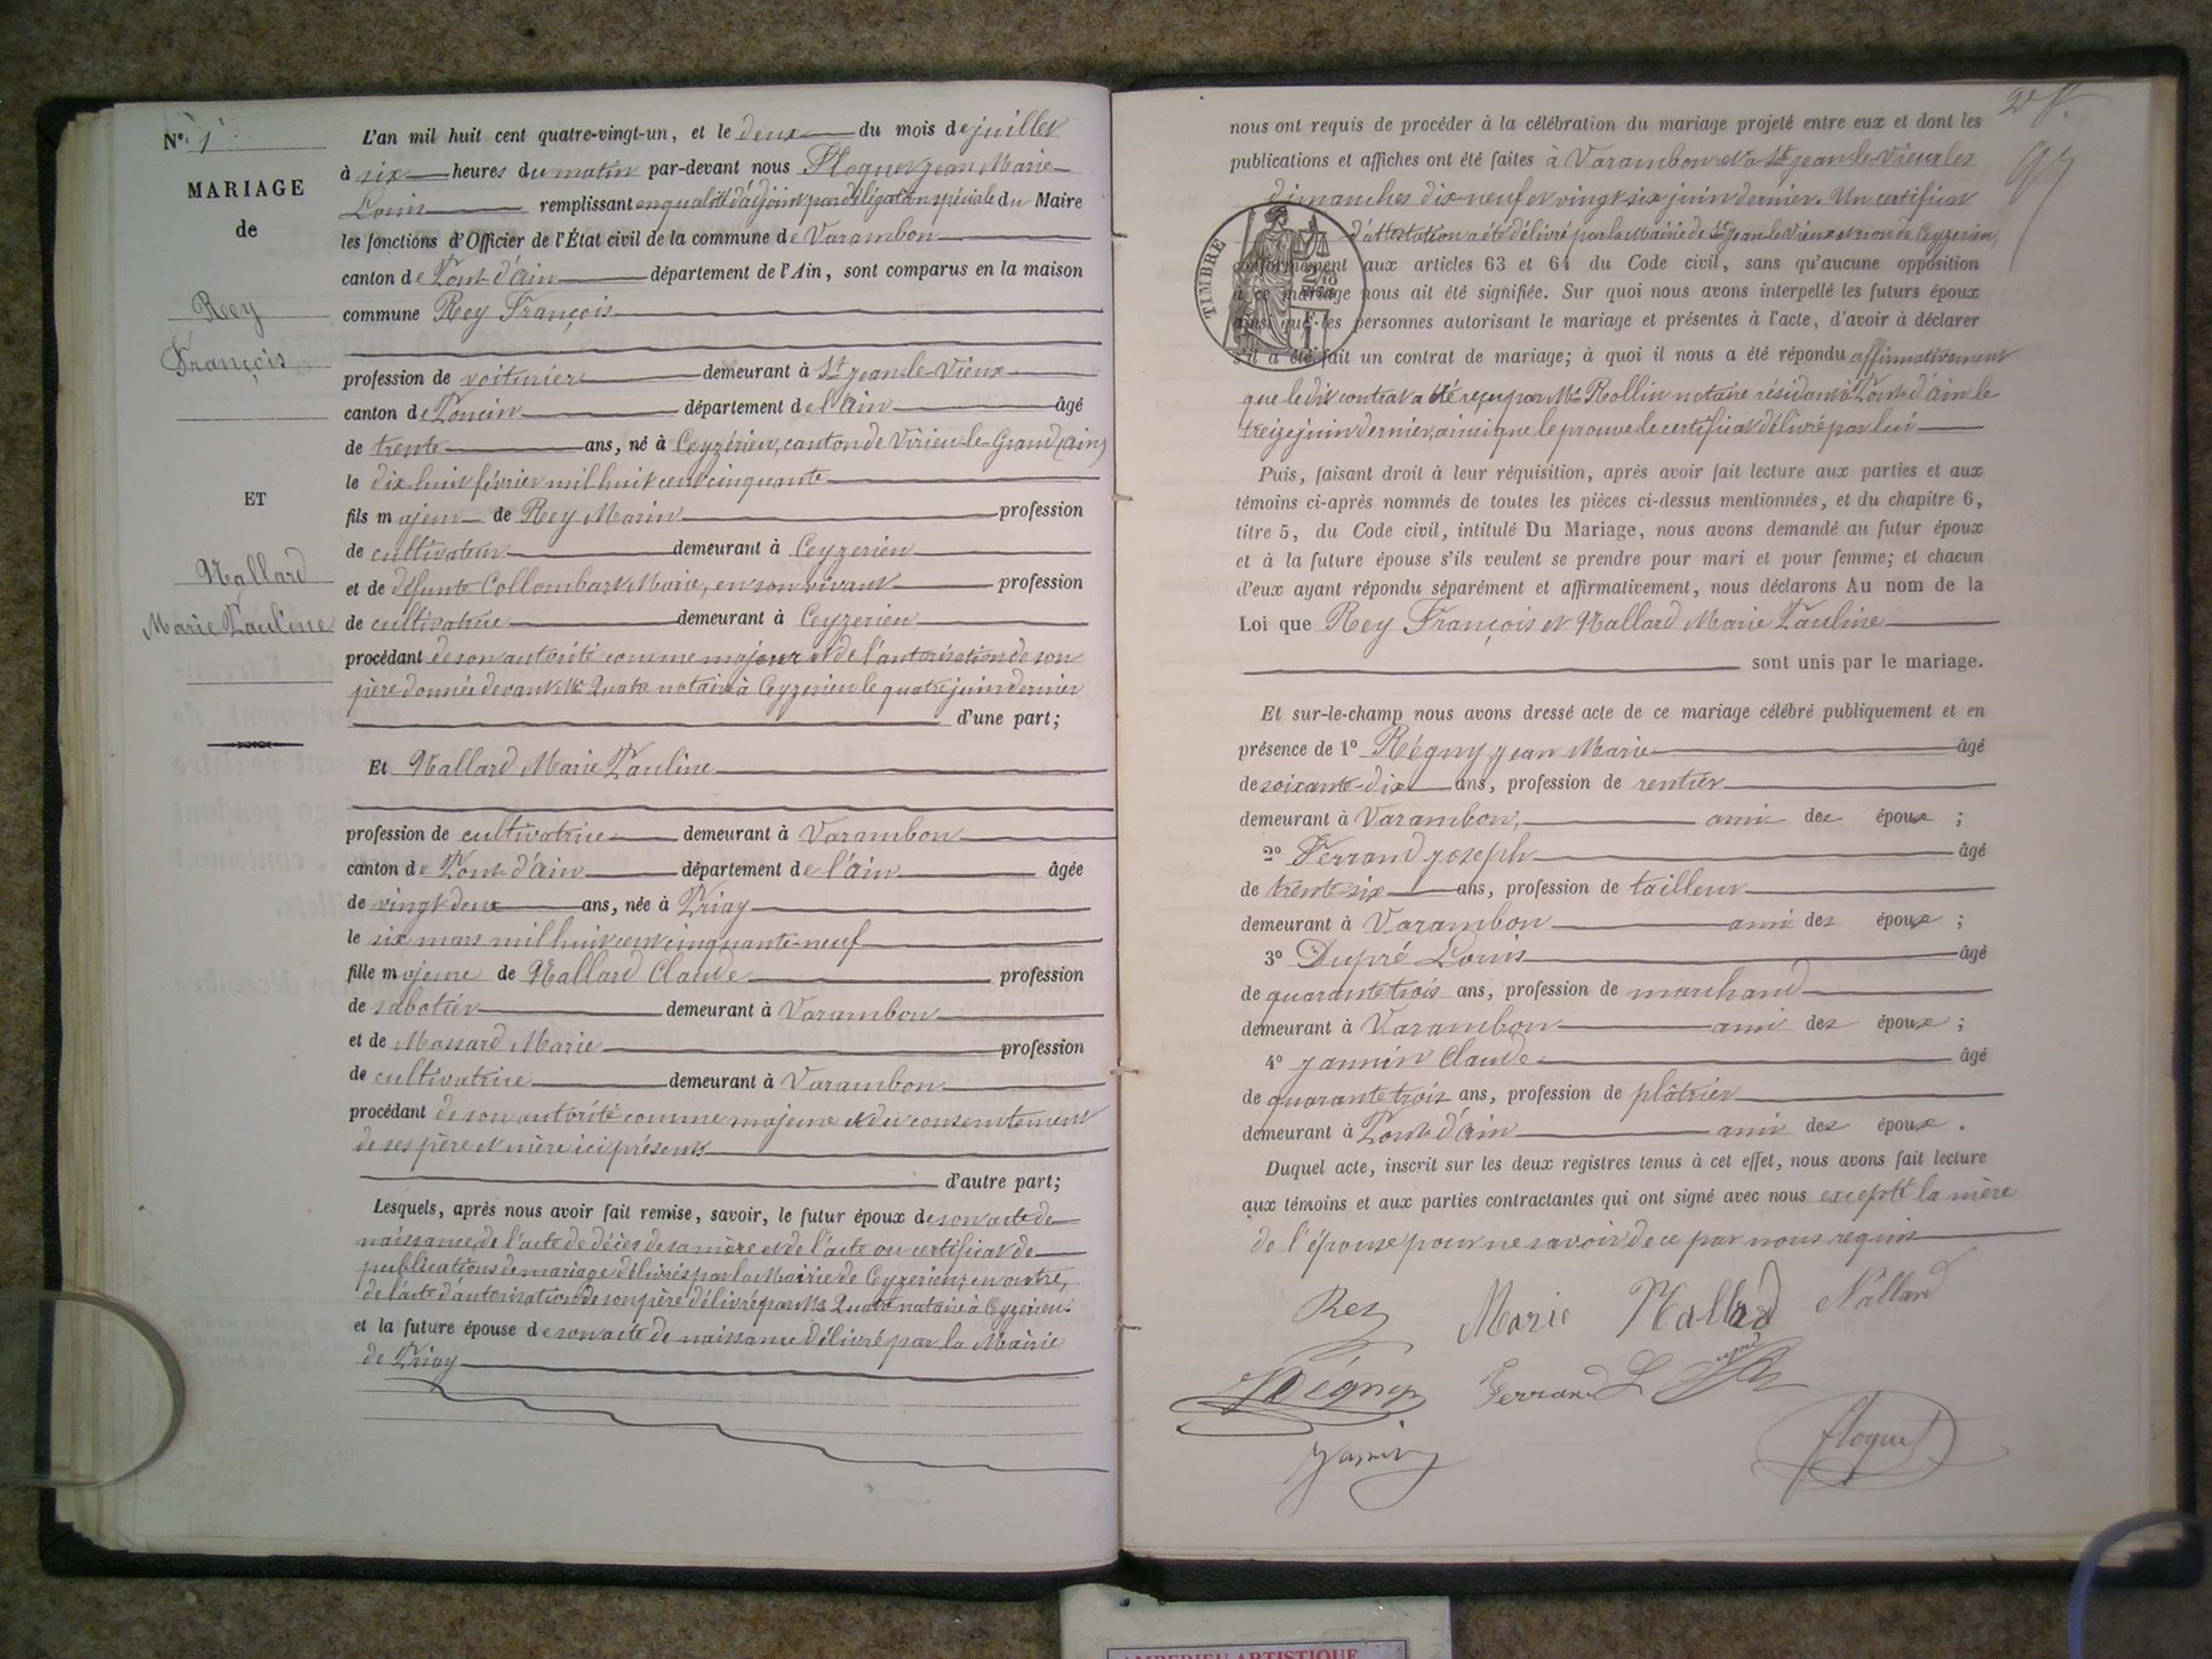 N° 1
MARIAGE
de
Rey
François
ET
Nallard
Marie Pauline
L'an mil huit cent quatre-vingt-un, et le deux du mois de juillet
à six heures du matin par-devant nous Floquet Jean Marie
Louis remplissant en qualité d'adjoint par délégation spéciale du Maire
les fonctions d'Officier de l'État civil de la commune de Varambon
canton de Pont-d'Ain département de l'Ain, sont comparus en la maison
commune Rey François
profession de voiturier demeurant à St Jean-le-Vieux
canton de Poncin département de l'Ain âgé
de trente ans, né à Ceyzérieu, canton de Virieu-le-Grand (Ain)
le dix huit février mil huit cent cinquante
fils majeur de Rey Marin profession
de cultivateur demeurant à Ceyzerieu
et de défunte Collombart Marie, en son vivant profession
de cultivatrice demeurant à Ceyzerieu
procédant de son autorité comme majeur et de l'autorisation de son
père donnée devant Me notaire à Ceyzerieu le quatre juin dernier
d'une part;
Et Nallard Marie Pauline
profession de cultivatrice demeurant à Varambon
canton de Pont-d'Ain département de l'Ain âgée
de vingt deux ans, née à Priay
le six mars mil huit cent cinquante-neuf
fille majeure de Nallard Claude profession
de sabotier demeurant à Varambon
et de Massard Marie profession
de cultivatrice demeurant à Varambon
procédant de son autorité comme majeure et du consentement
de ses père et mère ici présents
d'autre part;
Lesquels, après nous avoir fait remise, savoir, le futur époux de son acte de
naissance, de l'acte de décès de sa mère et de l'acte ou certificat de
publications de mariage délivrés par la Mairie de Ceyzerieu; en outre,
de l'acte d'autorisation de son père délivré par Me notaire à Ceyzerieu
et la future épouse de son acte de naissance délivré par la Mairie
de Priay
nous ont requis de procéder à la célébration du mariage projeté entre eux et dont les
publications et affiches ont été faites à Varambon et à St Jean-le-Vieux les
dimanches dix-neuf et vingt six juin dernier. Un certificat
d'attestation a été délivré par la Mairie de St Jean le Vieux et non de Ceyzerieu,
conformément aux articles 63 et 64 du Code civil, sans qu'aucune opposition
à ce mariage nous ait été signifiée. Sur quoi nous avons interpellé les futurs époux
ainsi que les personnes autorisant le mariage et présentes à l'acte, d'avoir à déclarer
s'il a été fait un contrat de mariage; à quoi il nous a été répondu affirmativement
que le dit contrat a été reçu par Me Rollin notaire résidant à Pont-d'Ain le
treize juin dernier, ainsi que le prouve le certificat délivré par lui
TIMBRE
Puis, faisant droit à leur réquisition, après avoir fait lecture aux parties et aux
témoins ci-après nommés de toutes les pièces ci-dessus mentionnées, et du chapitre 6,
titre 5, du Code civil, intitulé Du Mariage, nous avons demandé au futur époux
et à la future épouse s'ils veulent se prendre pour mari et pour femme; et chacun
d'eux ayant répondu séparément et affirmativement, nous déclarons Au nom de la
Loi que Rey François et Nallard Marie Pauline
sont unis par le mariage.
Et sur-le-champ nous avons dressé acte de ce mariage célébré publiquement et en
présence de 1° Régny Jean Marie âgé
de soixante-dix ans, profession de rentier
demeurant à Varambon, ami des époux ;
2° Ferrand Joseph âgé
de trente-six ans, profession de tailleur
demeurant à Varambon ami des époux ;
3° Dupré Louis âgé
de quarante trois ans, profession de marchand
demeurant à Varambon ami des époux ;
4° Jannin Claude âgé
de quarante trois ans, profession de plâtrier
demeurant à Pont-d'Ain ami des époux .
Duquel acte, inscrit sur les deux registres tenus à cet effet, nous avons fait lecture
aux témoins et aux parties contractantes qui ont signé avec nous excepté la mère
de l'épouse pour ne savoir de ce par nous requis
Rey Marie Nallard Nallard
Régny Ferrand L Dupré
Jannin Floquet
AMBERIEU ARTISTIQUE